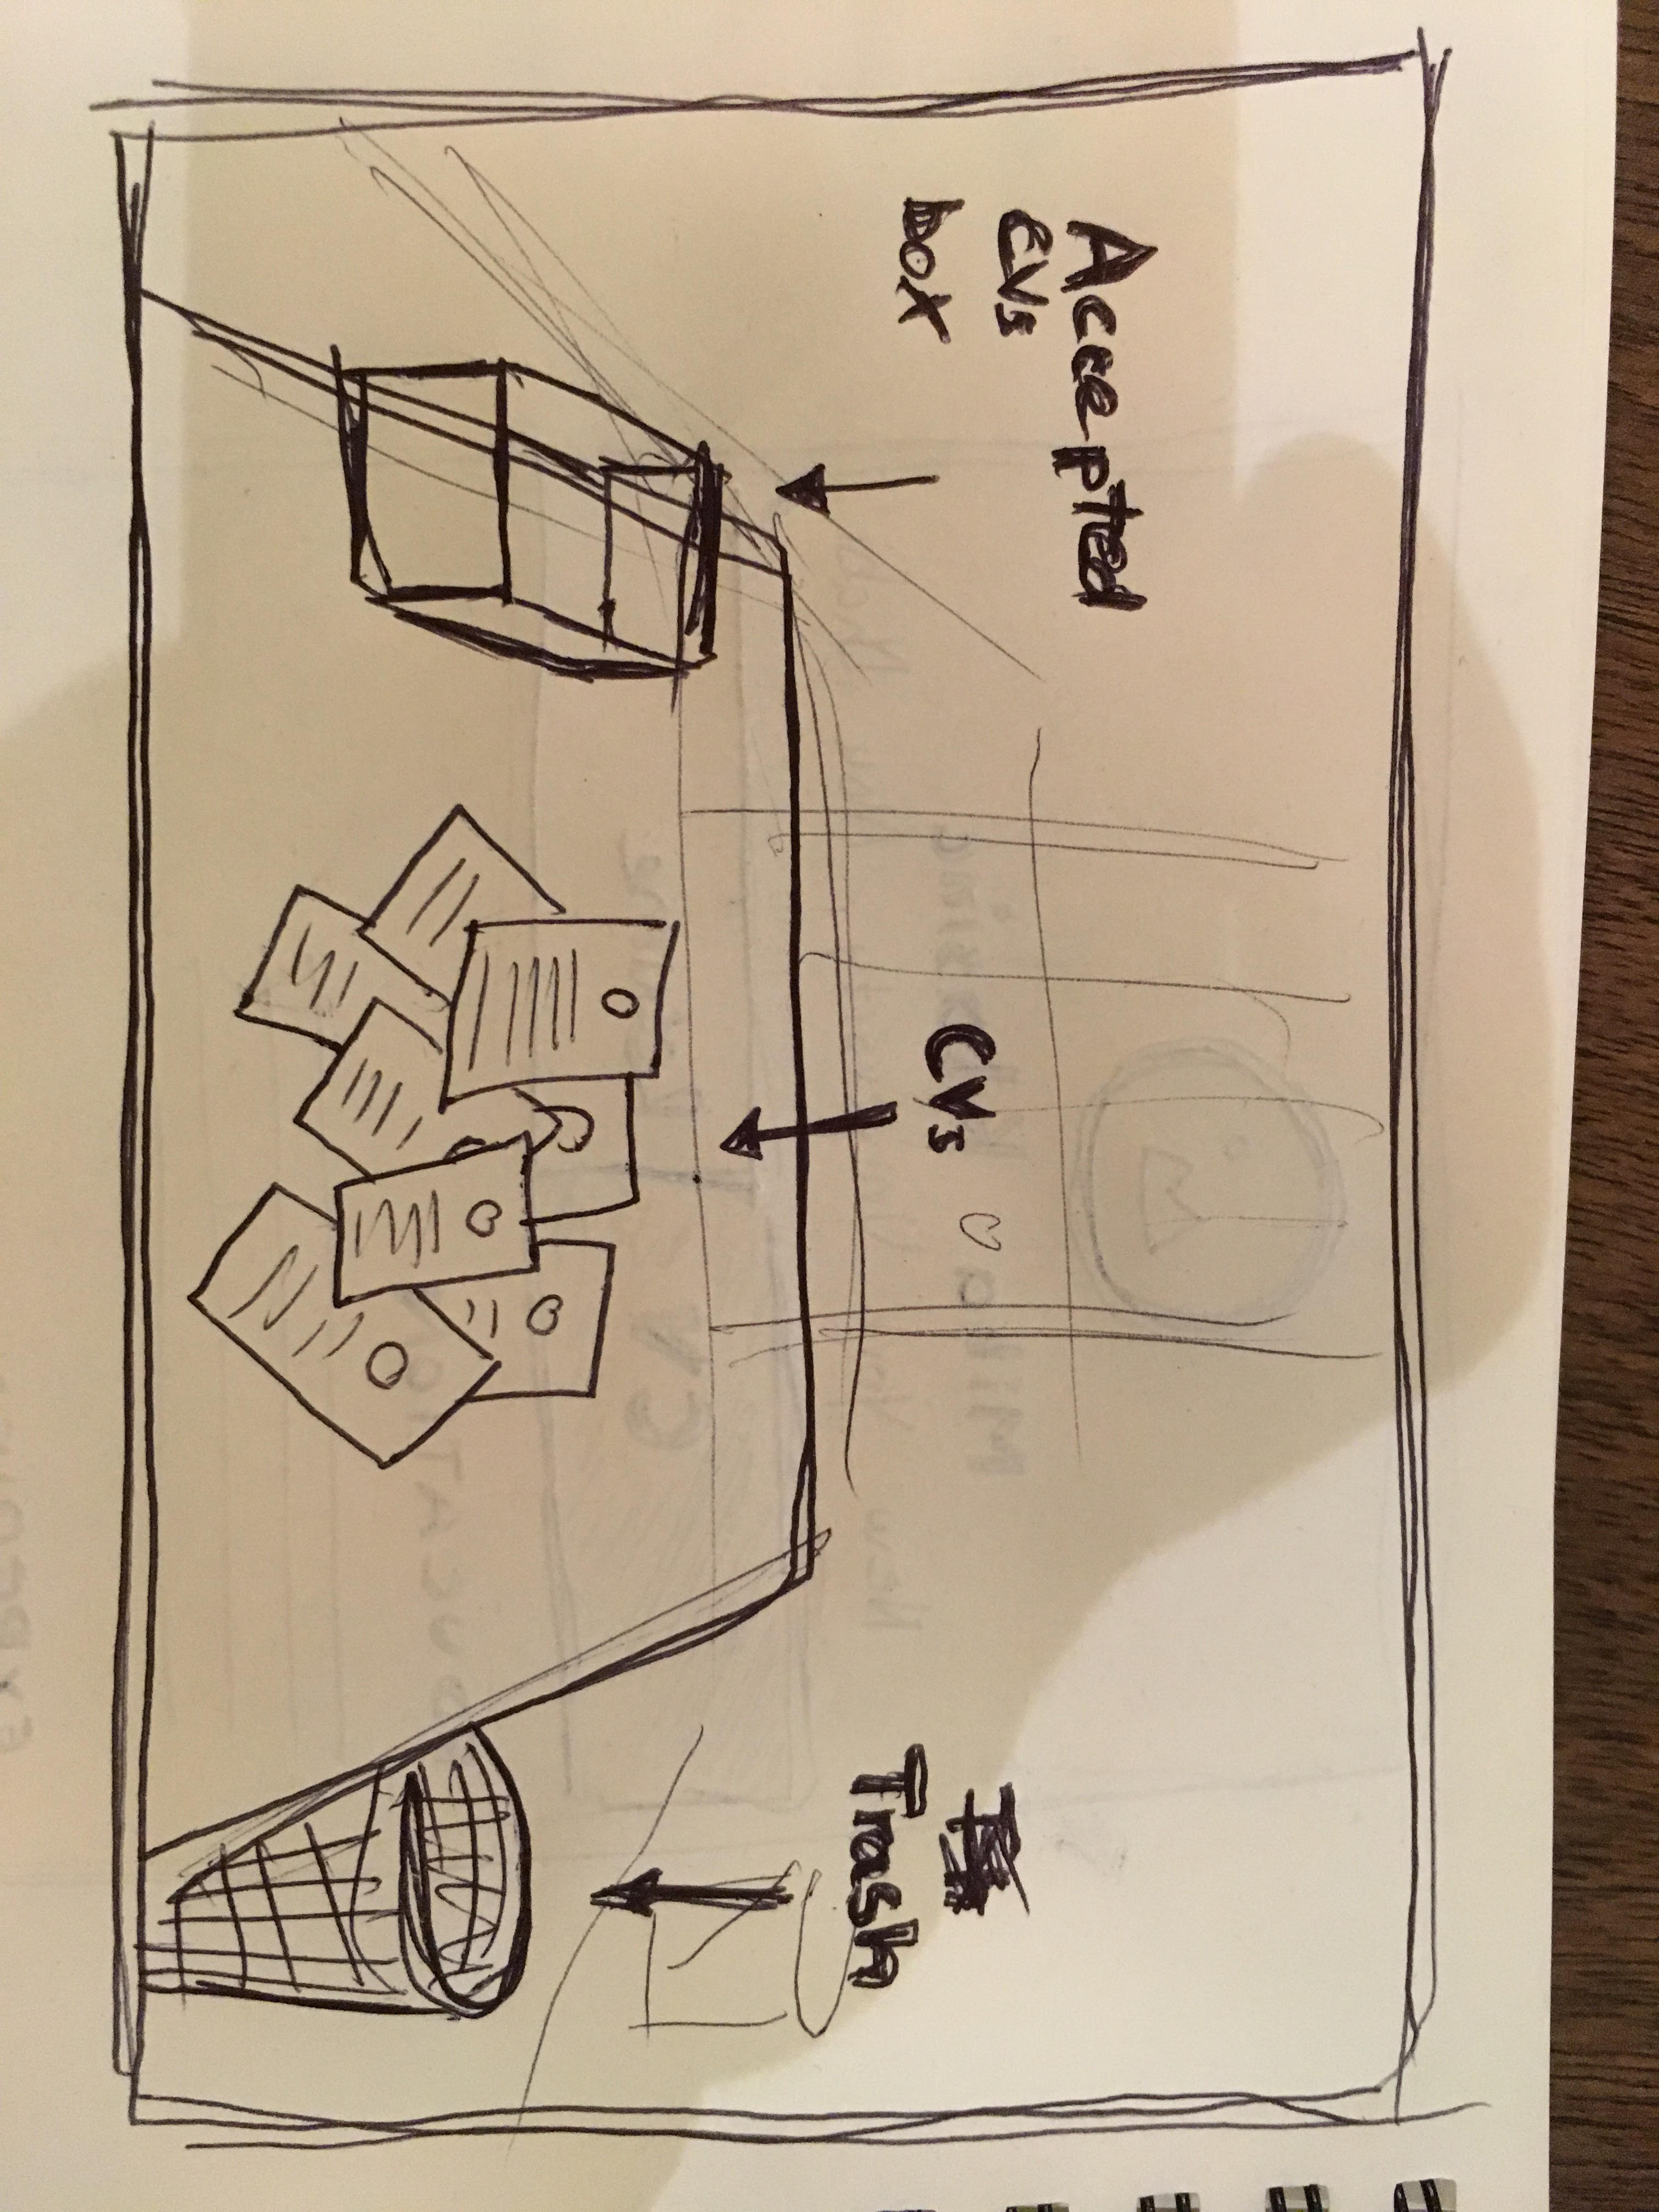 Accepted
CVs
box
CVs
Trash